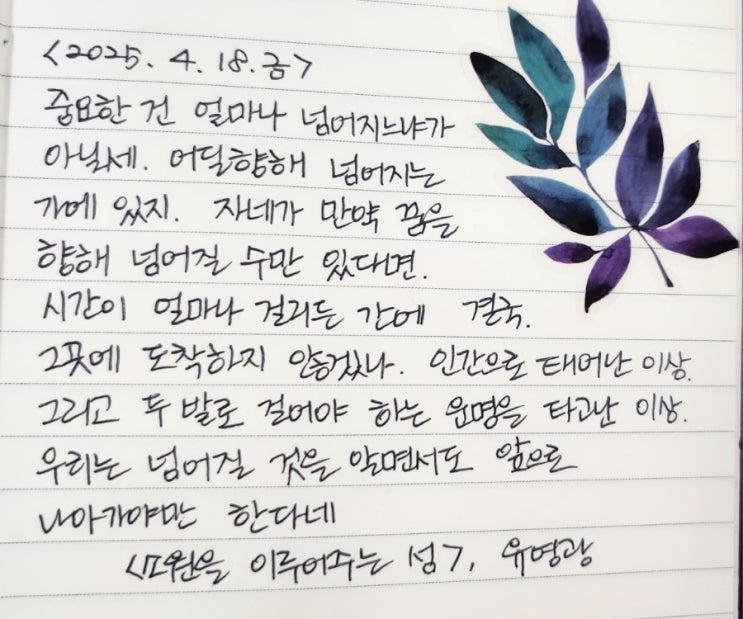 <2025. 4. 18. 금>
중요한 건 얼마나 넘어지느냐가
아닐세. 어딜향해 넘어지는
가에 있지. 자네가 만약 꿈을
향해 넘어질 수만 있다면.
시간이 얼마나 걸리든 간에 결국.
그곳에 도착하지 않겠나. 인간으로 태어난 이상.
그리고 두 발로 걸어야 하는 운명을 타고난 이상.
우리는 넘어질 것을 알면서도 앞으로
나아가야만 한다네
<소원을 이루어주는 섬>, 유영광